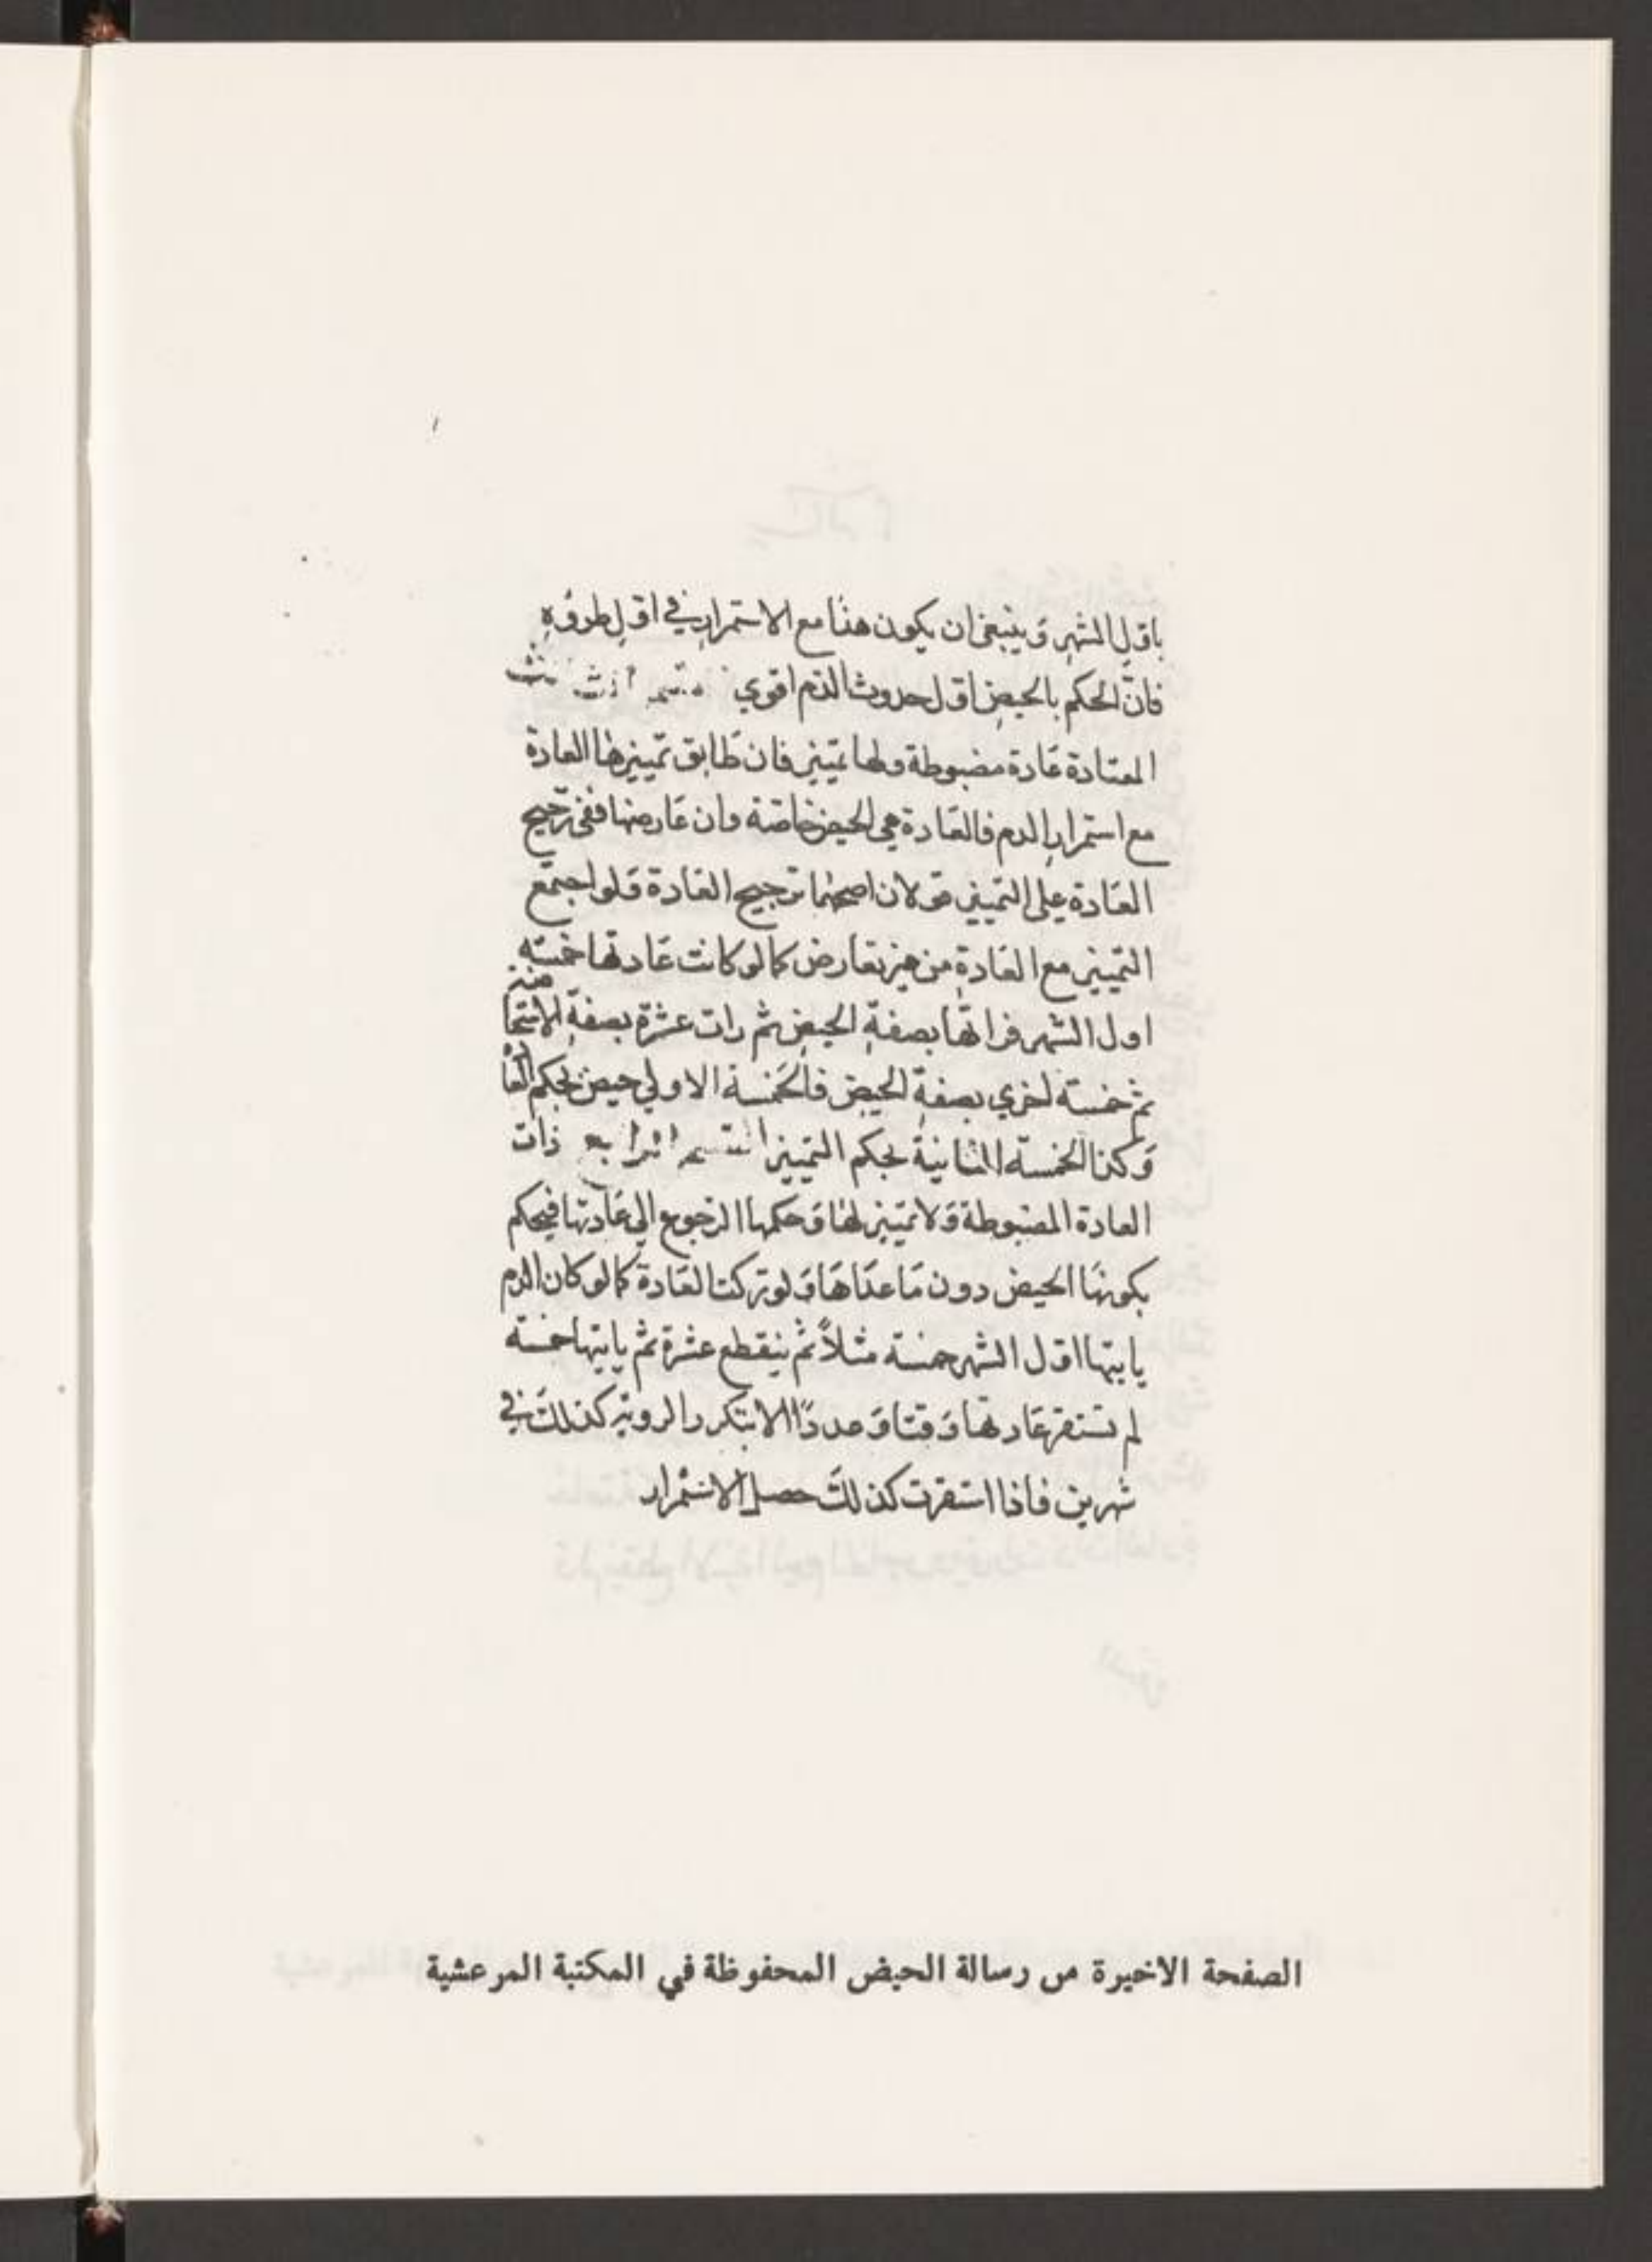 باول الشهر وينبغي ان يكون هذا مع الاستمرار في اول طروه
فان الحكم بالحيض اول حدوث الدم اقوي
المعتادة عادة مضبوطة ولها تميز فان طابق تمييزها العادة
مع استمرار الدم فالعادة هي الحيض خاصة وان عارضها ففي ترجيح
العادة على التمييز قولان اصحهما ترجيح العادة ولو اجتمع
التمييز مع العادة من غير تعارض كما لو كانت عادتها خمسة
اول الشهر فراتها بصفة الحيض ثم رات عشرة بصفة الاستحا
ضة
ثم خمسة اخري بصفة الحيض فالخمسة الاولي حيض بحكم العا
دة
وكذا الخمسة الثانية بحكم التمييز القسم الرابع ذات
العادة المضبوطة ولا تميز لها وحكمها الرجوع الي عادتها فيحكم
بكونها الحيض دون ما عداها ولو تركت العادة كما لو كان الدم
ياتيها اول الشهر خمسة مثلاً ثم ينقطع عشرة ثم ياتيها خمسة
لم تستقر عادتها وقتا وعدداً الا بتكرر الروية كذلك في
شهرين فاذا استقرت كذلك حصل الاستمرار
الصفحة الاخيرة من رسالة الحيض المحفوظة في المكتبة المرعشية